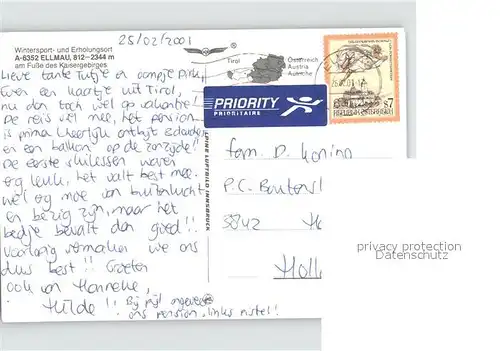 25/02/2001
Wintersport- und Erholungsort
A-6352 ELLMAU, 812–2344 m
am Fuße des Kaisergebirges
Lieve tante Tutje en oompje Dirk,
Even een kaartje uit Tirol,
nu dan toch wel op vakantie!
De reis viel mee, het pension
is prima (heerlijk ontbijt &
en een balkon op de zonzijde!!
De eerste skilessen waren
erg leuk, het valt best mee.
wel erg moe van buitenlucht
en bezig zijn, maar het
bedje bevalt dan goed!!
Voorlopig vermaken we ons
dus best!! Groeten
ook van Hanneke,
Hilde!!
Bij pijl
ons pension, links
Tirol
Österreich
Austria
Autriche
PRIORITY
PRIORITAIRE
7
REPUBLIK ÖSTERREICH
ALPINE LUFTBILD INNSBRUCK
Fam. D.
P.C.
3842
Holl
privacy protection
Datenschutz